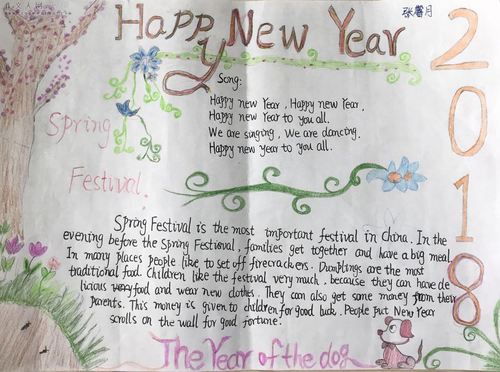 张馨月
Happy New Year
2018
Song:
Happy new Year, Happy new Year,
Happy new Year to you all.
We are singing, We are dancing.
Happy new year to you all.
Spring
Festival.
Spring Festival is the most important festival in China. In the
evening before the Spring Festival, families get together and have a big meal.
In many places people like to set off firecrackers. Dumplings are the most
traditional food. Children like the festival very much, because they can have de
licious food and wear new clothes. They can also get some money from their
parents. This money is given to children for good luck. People put New Year
scrolls on the wall for good fortune.
The Year of the dog